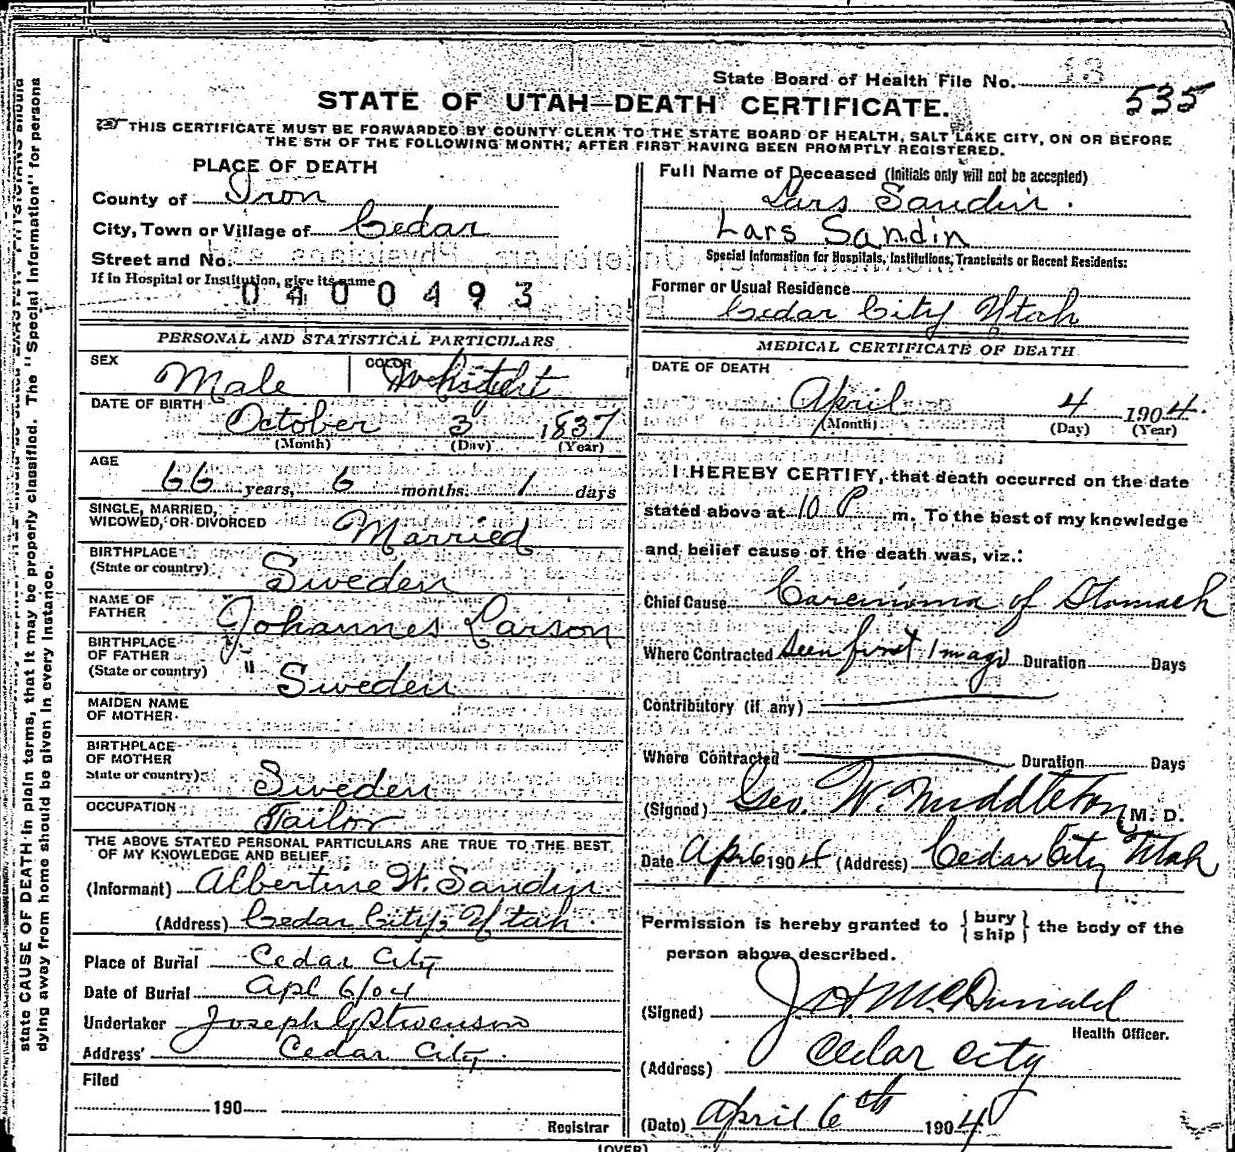 State Board of Health File No. 13
535
STATE OF UTAH—DEATH CERTIFICATE.
THIS CERTIFICATE MUST BE FORWARDED BY COUNTY CLERK TO THE STATE BOARD OF HEALTH, SALT LAKE CITY, ON OR BEFORE
THE 5TH OF THE FOLLOWING MONTH, AFTER FIRST HAVING BEEN PROMPTLY REGISTERED.
PLACE OF DEATH
County of Iron
City, Town or Village of Cedar
Street and No.
If in Hospital or Institution, give its name
0400493
Full Name of Deceased (Initials only will not be accepted)
Lars Sandin.
Lars Sandin
Special Information for Hospitals, Institutions, Transients or Recent Residents:
Former or Usual Residence
Cedar City Utah
PERSONAL AND STATISTICAL PARTICULARS
SEX Male COLOR White
DATE OF BIRTH
October 3 1837
(Month) (Day) (Year)
AGE
66 years, 6 months. 1 days
SINGLE, MARRIED,
WIDOWED, OR DIVORCED Married
BIRTHPLACE
(State or country) Sweden
NAME OF
FATHER Johannes Larson
BIRTHPLACE
OF FATHER
(State or country) " Sweden
MAIDEN NAME
OF MOTHER
BIRTHPLACE
OF MOTHER
State or country) Sweden
OCCUPATION Tailor
THE ABOVE STATED PERSONAL PARTICULARS ARE TRUE TO THE BEST
OF MY KNOWLEDGE AND BELIEF
(Informant) Albertine W. Sandin
(Address) Cedar City, Utah
Place of Burial Cedar City
Date of Burial Apl 6/04
Undertaker Joseph
Address Cedar City.
Filed
190
Registrar
MEDICAL CERTIFICATE OF DEATH
DATE OF DEATH
April 4 1904.
(Month) (Day) (Year)
I HEREBY CERTIFY, that death occurred on the date
stated above at 10 P m. To the best of my knowledge
and belief cause of the death was, viz.:
Chief Cause Carcinoma of Stomach
Where Contracted seen first 1 m ago Duration Days
Contributory (if any)
Where Contracted Duration Days
(Signed) Geo. W. Middleton M. D.
Date Apr 6 1904 (Address) Cedar City Utah
Permission is hereby granted to {bury
ship} the body of the
person above described.
(Signed) McDonald
Health Officer.
(Address) Cedar City
(Date) April 6th 1904
(OVER)
state CAUSE OF DEATH in plain terms, that it may be properly classified. The "Special Information" for persons
dying away from home should be given in every instance.